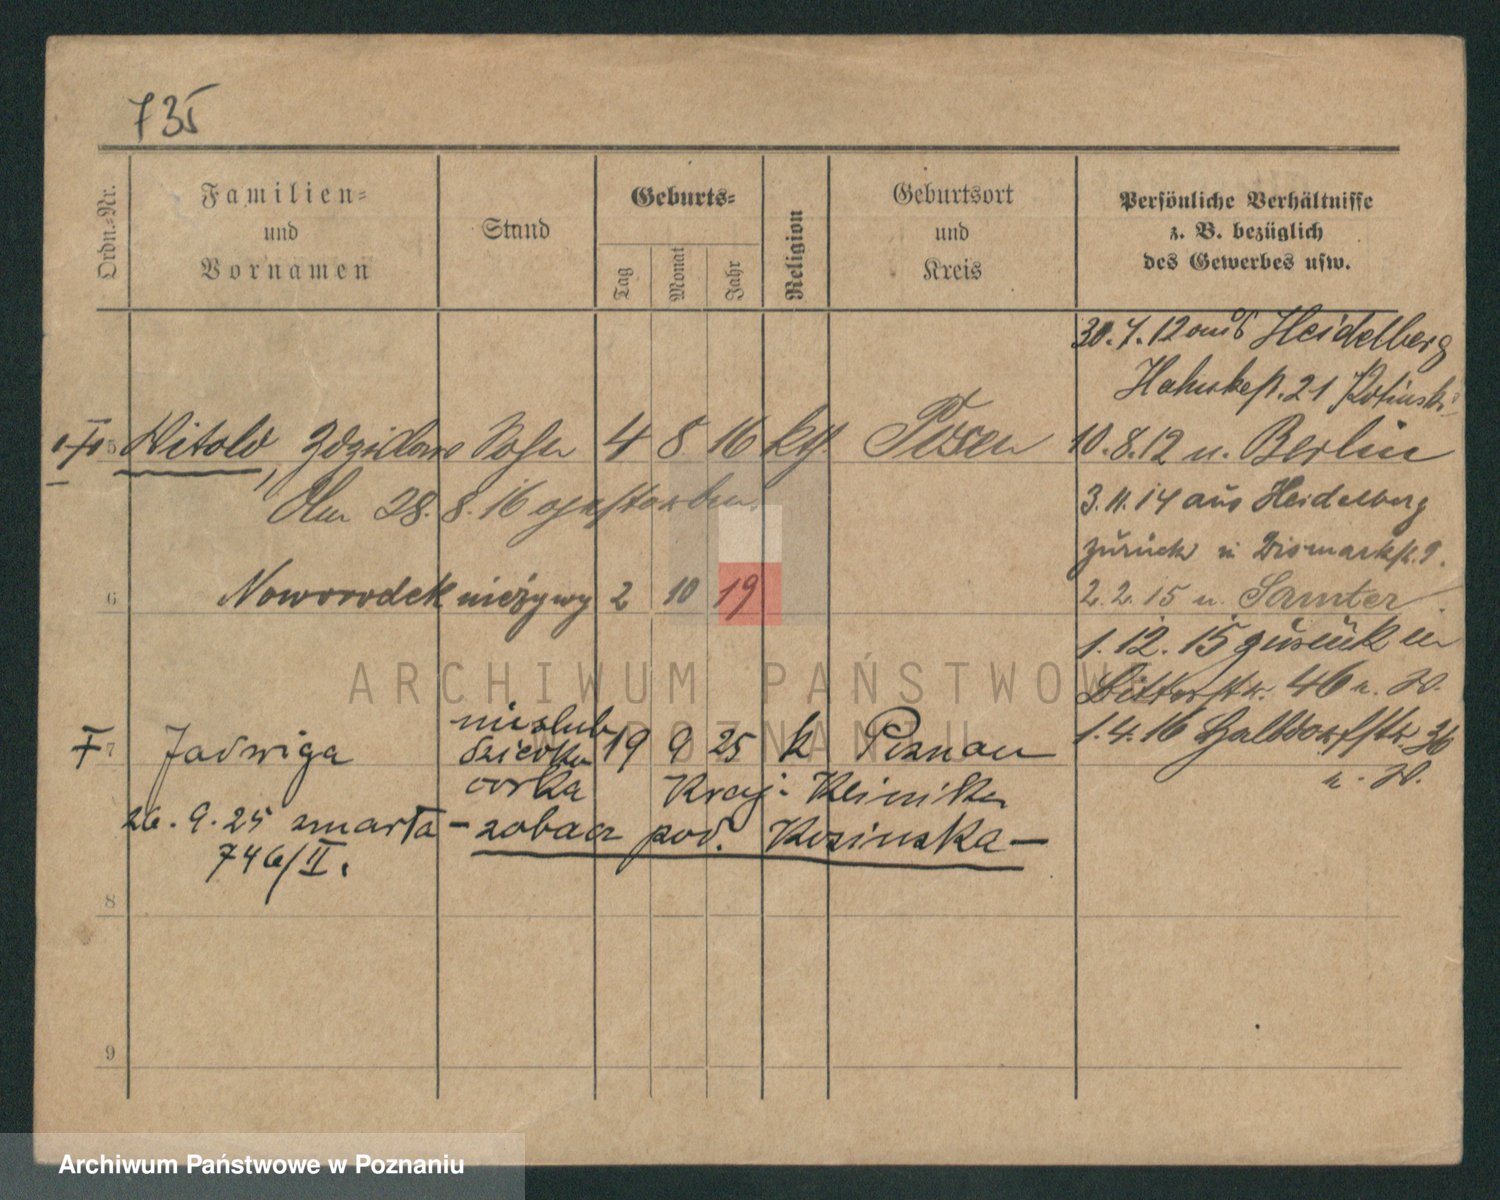 735
Ordn.-Nr.
Familien-
und
Vornamen
Stand
Geburts-
Tag
Monat
Jahr
Religion
Geburtsort
und
Kreis
Persönliche Verhältnisse
z. B. bezüglich
des Gewerbes usw.
5 Witold, Zdzislaw Sohn 4 8 16 kth. Posen
Am 28. 8. 16 gestorben.
6 Noworodek nieżywy 2 10 19
7 Jadwiga nieślub 19 9 25 k Poznan
córka Kraj. Klinika
26. 9. 25 zmarła - zobacz pod. Kosinska -
746/II.
8
9
30. 7. 12 aus Heidelberg
21
10. 8. 12 n. Berlin
3. 11. 14 aus Heidelberg
zurück n Bismarckst. 9.
2. 2. 15 n. Samter
1. 12. 15 zurück
Ritterstr. 46 n. W.
1. 4. 16 Halbdorfstr 36
n. W.
ARCHIWUM PAŃSTWOWE
POZNANIU
Archiwum Państwowe w Poznaniu